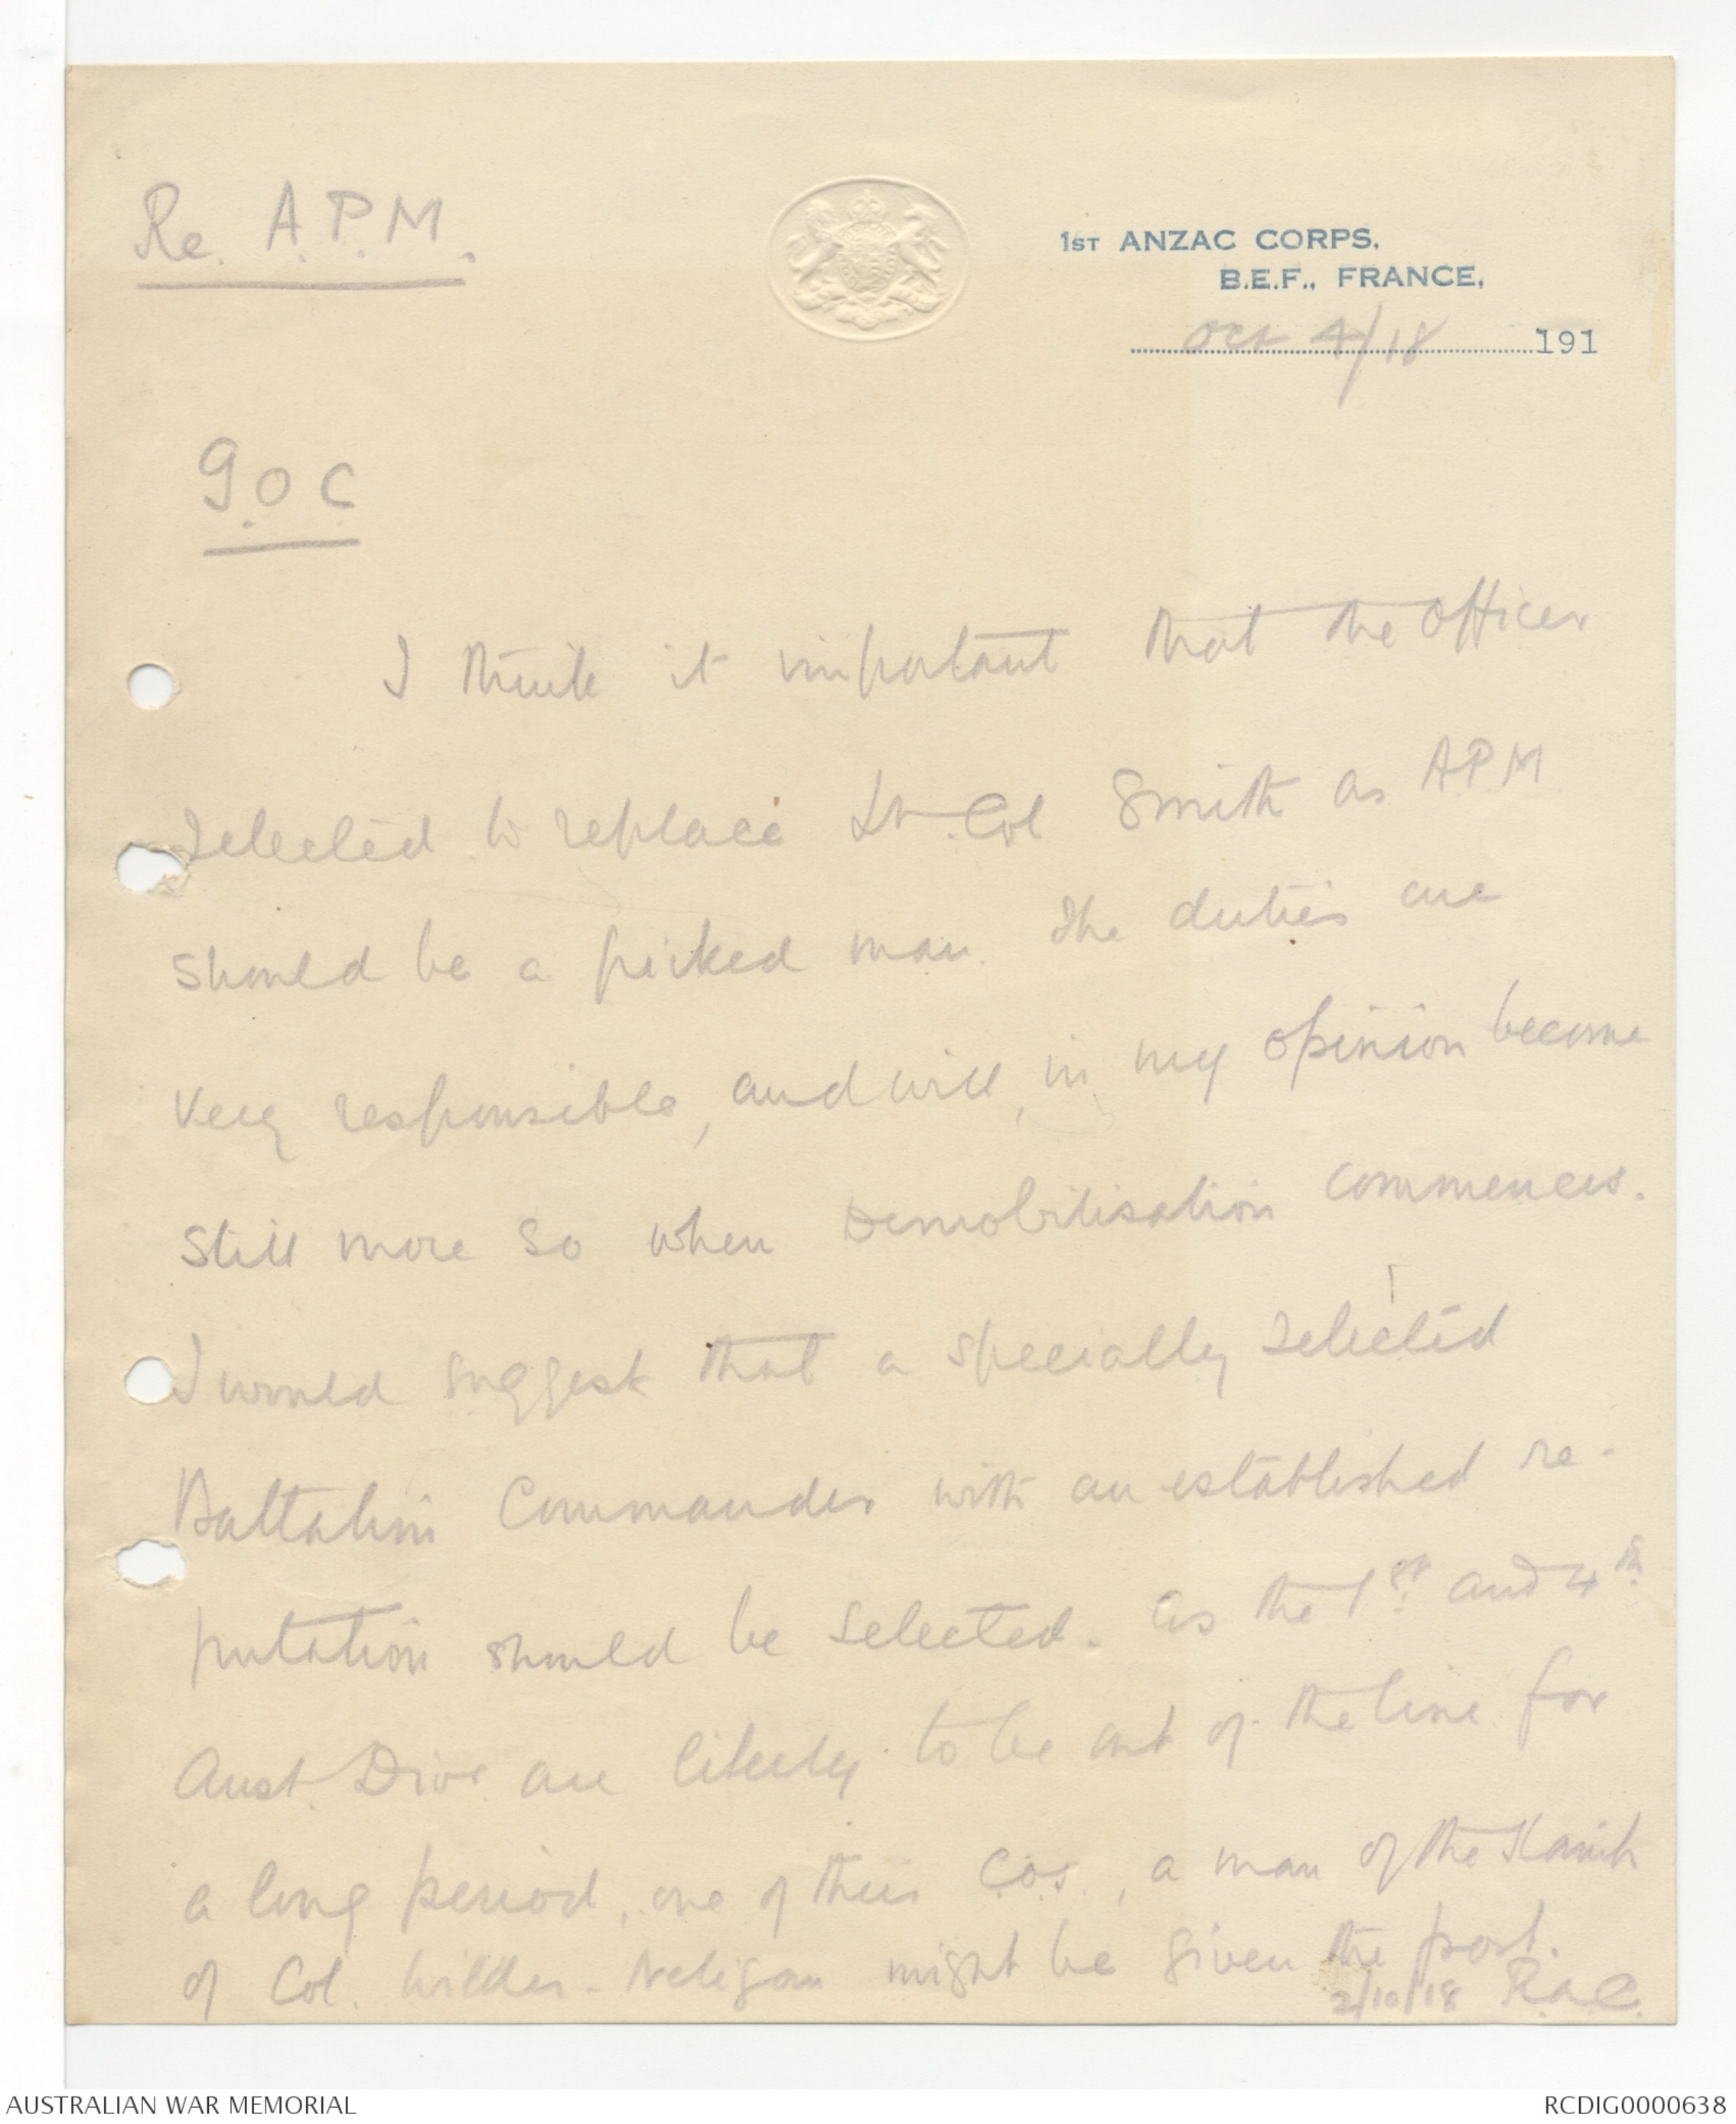 Re. A.P.M.
1ST ANZAC CORPS,
B.E.F., FRANCE,
Oct 4/18 191
G.O.C
I think it important that the Officer
selected to replace Lt. Col Smith as A.P.M
should be a picked man. The duties are
very responsible, and will, in my opinion become
still more so when Demobilisation commences.
I would suggest that a specially selected
Battalion Commander with an established re-
putation should be selected. As the 1st and 4th
Aust. Divs. are likely to be out of the line for
a long period, one of their C.O.s., a man of the
of Col. Wilder-Neligan might be given the post.
2/10/18 R.A.C.
AUSTRALIAN WAR MEMORIAL
RCDIG0000638